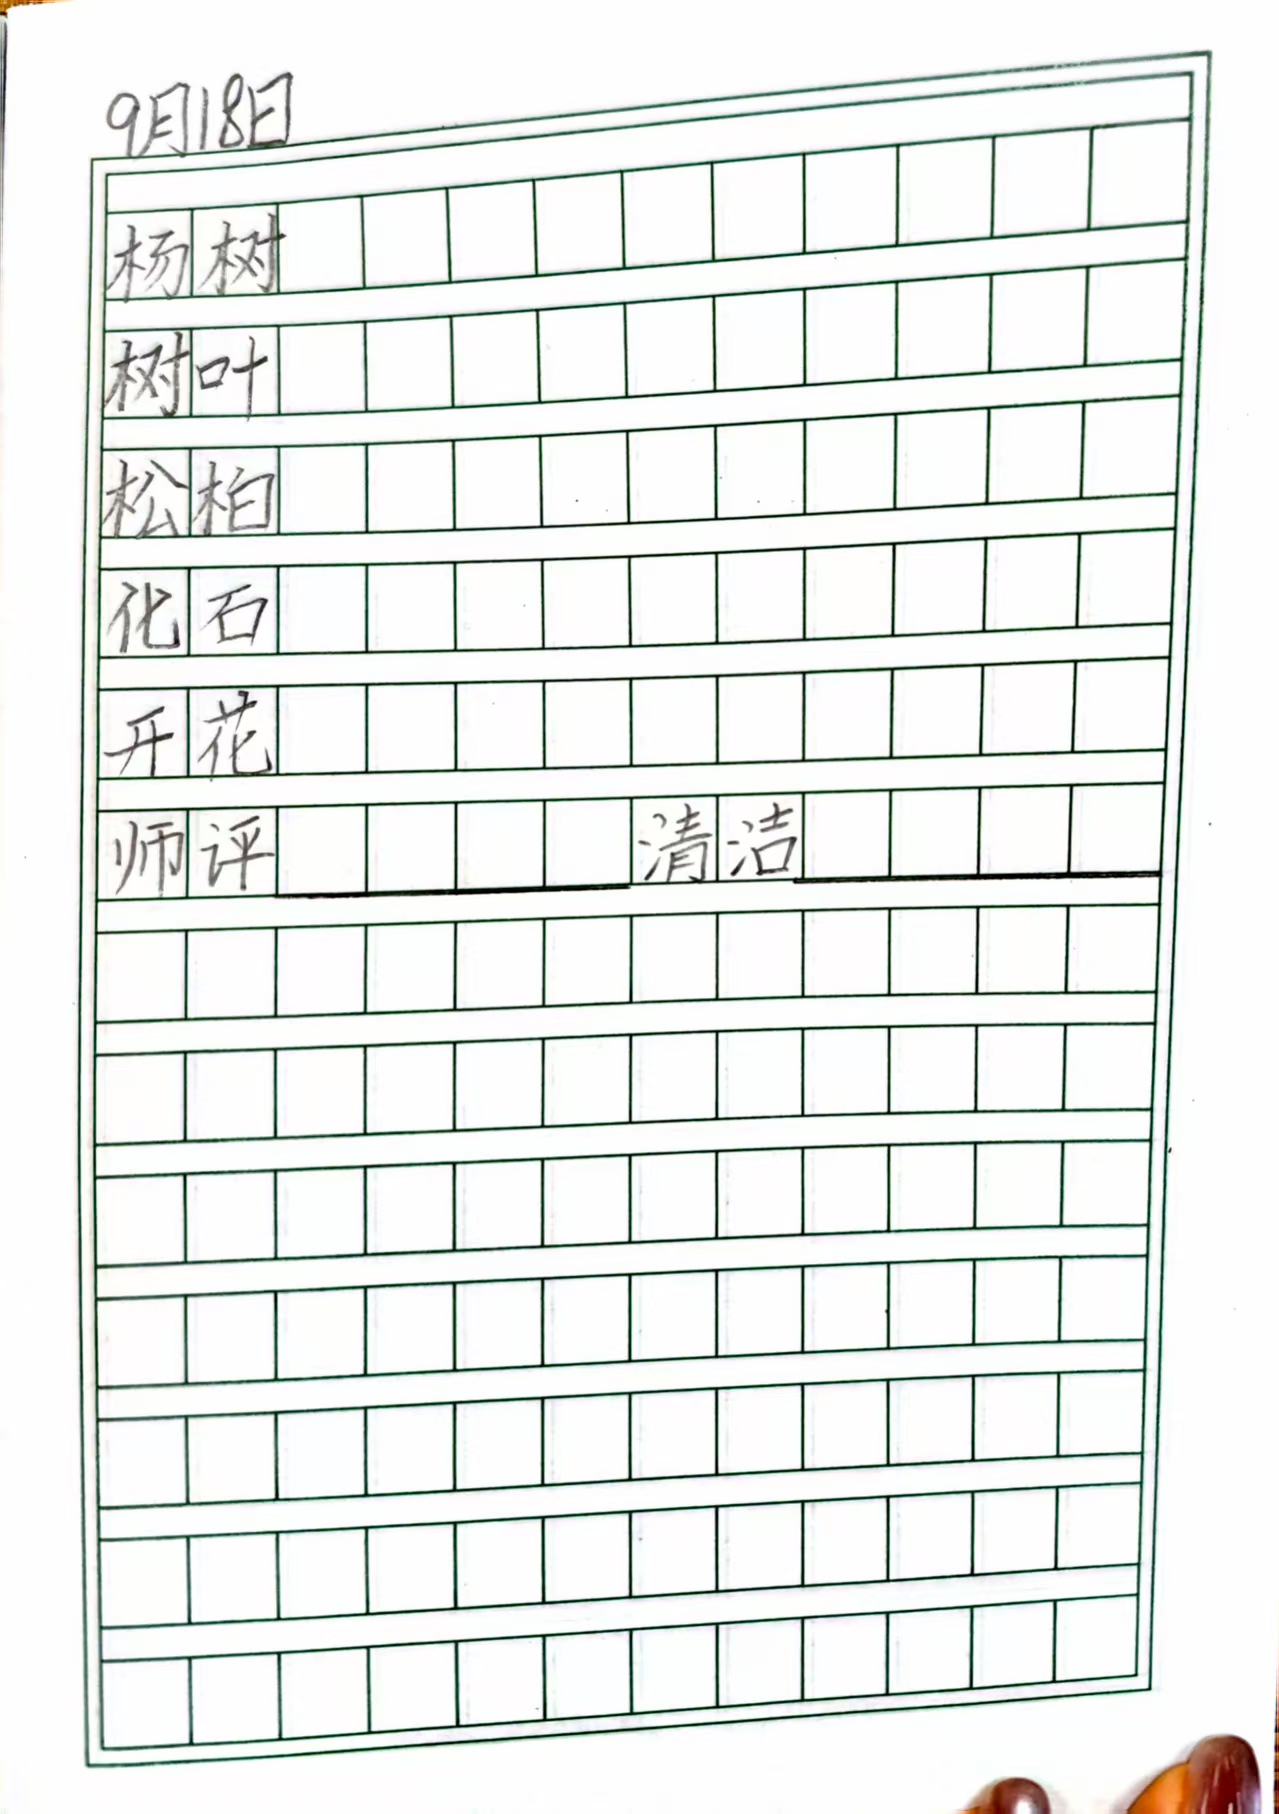 9月18日
杨树
树叶
松柏
化石
开花
师评 清洁